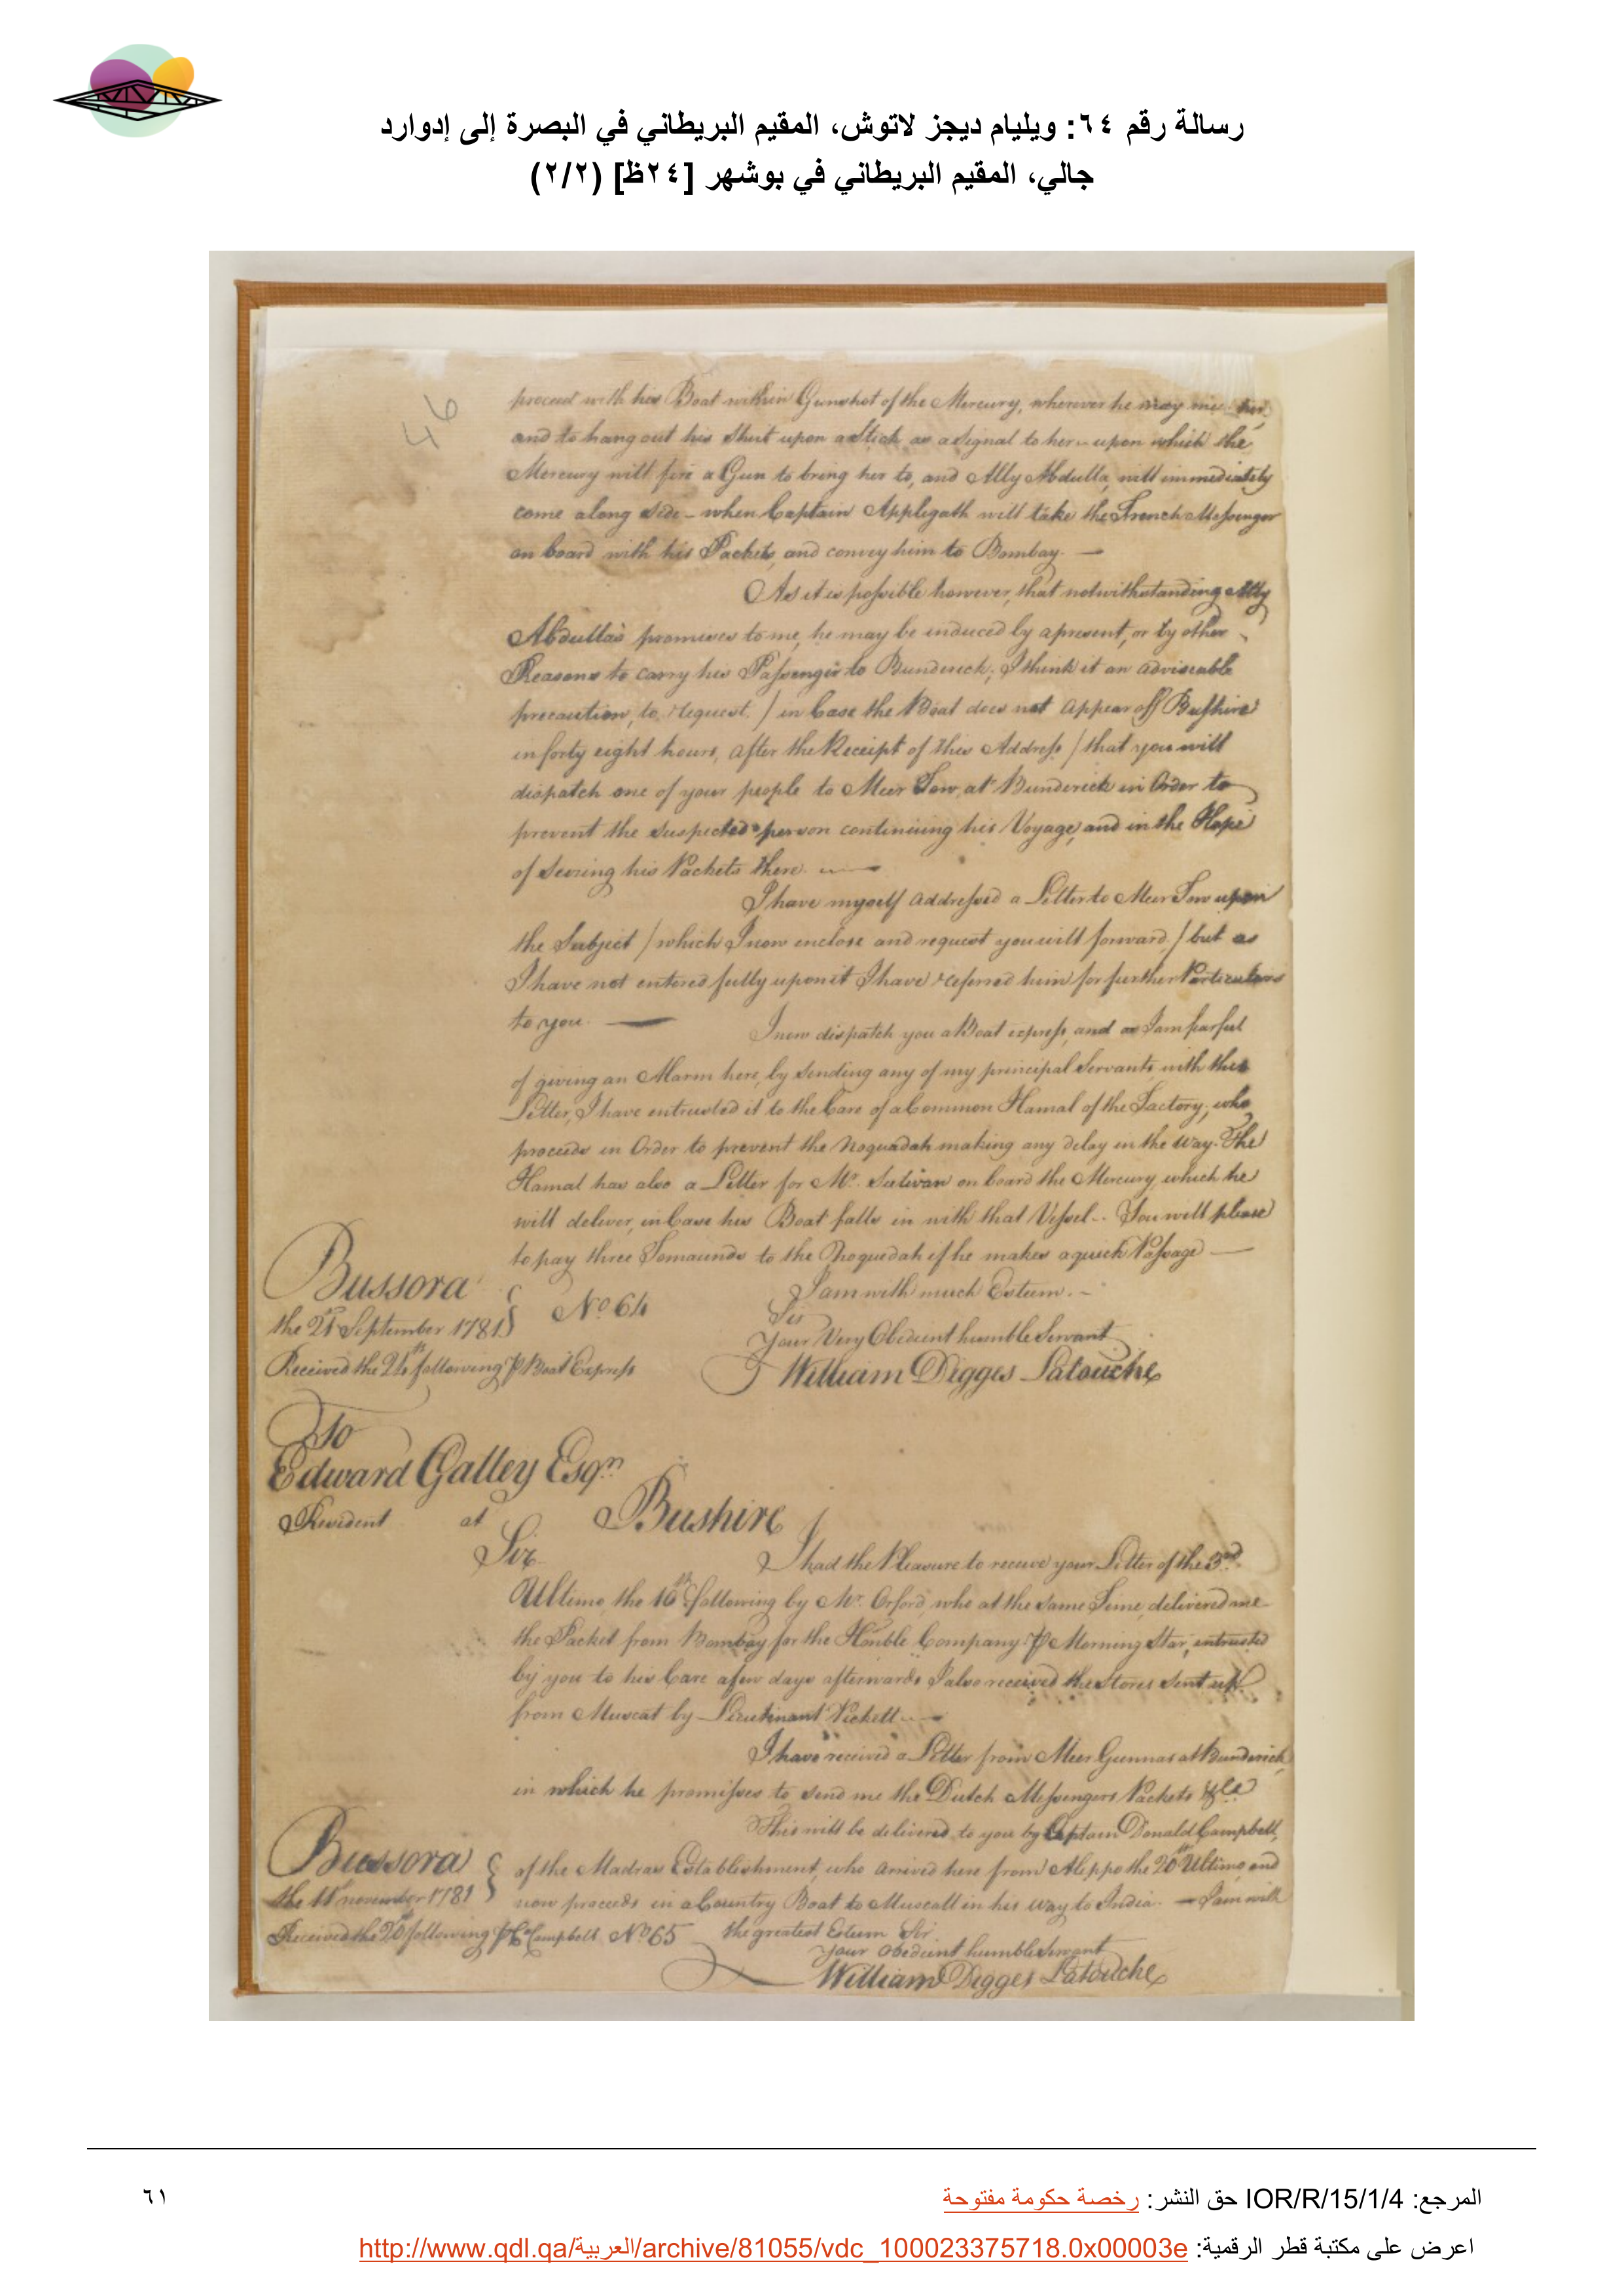 رسالة رقم ٦٤: ويليام ديجز لاتوش، المقيم البريطاني في البصرة إلى إدوارد
جالي، المقيم البريطاني في بوشهر [٢٤ظ] (٢/٢)
46
proceed with his Boat within Gunshot of the Mercury, wherever he may
and to hang out his Shirt upon a Stick as a Signal to her upon which the
Mercury will fire a Gun to bring her to, and Ally Abdulla, will immediately
come along side - when Captain Applegath will take the French Messenger
on board with his Packets, and convey him to Bombay. —
As it is possible however, that notwithstanding Ally
Abdulla's promises to me, he may be induced by a present, or by other
Reasons to carry his Passenger to Bunderick; I think it an adviseable
precaution, to request / in Case the Boat does not appear off Bushire
in forty eight hours, after the Receipt of this Address / that you will
dispatch one of your people to Meer at Bunderick in Order to
prevent the suspected person continuing his Voyage, and in the Hope
of his Packets there. —
I have myself addressed a Letter to Meer upon
the Subject / which I now enclose and request you will forward / but as
I have not entered fully upon it I have referred him for further Particulars
to you. — I now dispatch you a Boat express, and as I am fearful
of giving an Alarm here, by sending any of my principal Servants with this
Letter, I have entrusted it to the Care of a Common Hamal of the Factory, who
proceeds in Order to prevent the Noquedah making any delay in the way. The
Hamal has also a Letter for Mr. Sulivan on board the Mercury which he
will deliver, in Case his Boat falls in with that Vessel. You will please
to pay three Tomaunds to the Noquedah if he makes a quick Passage —
Bussora
the 21st September 1781
No. 64
Received the 24th following ⅌ Boat Express
I am with much Esteem. -
Sir
Your Very Obedient humble Servant
William Digges Latouche
To
Edward Galley Esqr.
Resident at Bushire
Sir
I had the Pleasure to receive your Letter of the 3rd
Ultimo, the 16th following by Mr. Orford, who at the same Time, delivered me
the Packet from Bombay for the Honble Company ⅌ Morning Star, entrusted
by you to his Care a few days afterwards I also received the Stores sent up
from Muscat by Lieutinant Pickett. —
I have received a Letter from Meer Gunnas at Bunderick,
in which he promisses to send me the Dutch Messengers Packets &ca
This will be delivered to you by Captain Donald Campbell,
of the Madras Establishment, who arrived here from Aleppo the 20th Ultimo, and
now proceeds in a Country Boat to Muscatt in his way to India. — I am with
Bussora
the 11th November 1781
Received the 20th following ⅌ Campbell No. 65
the greatest Esteem Sir
Your Obedient humble Servant
William Digges Latouche
المرجع: IOR/R/15/1/4 حق النشر: رخصة حكومة مفتوحة
٦١
اعرض على مكتبة قطر الرقمية: http://www.qdl.qa/العربية/archive/81055/vdc_100023375718.0x00003e